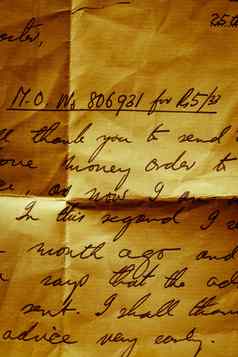 25th
M.O. No 806931 for Rs 5/
thank you to send
money order to
as now I am
In this regard I
month ago and
says that the ad
sent. I shall than
advice very early.